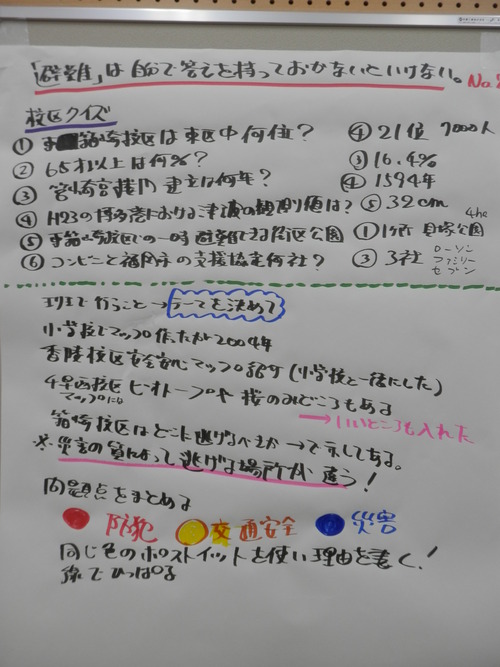 「避難」は自分で答えを持っておかないといけない。 No.2
校区クイズ
① 筥崎校区は東区中何位? ④ 21位 7000人
② 65才以上は何%? ③ 16.4%
③ 筥崎宮楼門 建立は何年? ④ 1594年
④ H23の博多湾における津波の観測値は? ⑤ 32cm
⑤ 筥崎校区での一時避難できる街区公園 ① 1ヶ所 貝塚公園 4ha
⑥ コンビニと福岡市の支援協定何社? ③ 3社 ローソン ファミリー セブン
で行うこと→テーマを決めて
小学校でマップ作ったが2004年
香陵校区安全安心マップ (小学校と一緒にした)
千早西校区 ビオトープや桜のみどころもある
マップには
→いいところも入れた
筥崎校区はどこに逃げるべきか→で示してある。
※災害の質によって逃げる場所が違う!
問題点をまとめる
防犯 交通安全 災害
同じ色のポストイットを使い理由を書く!
線でひっぱる